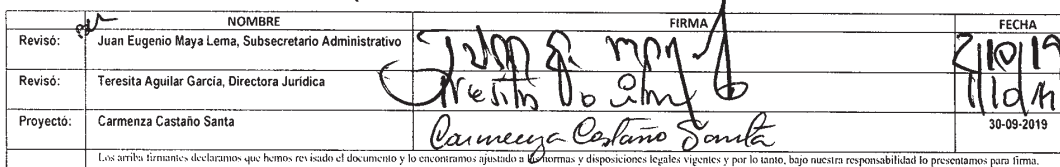 NOMBRE FIRMA FECHA
Revisó: Juan Eugenio Maya Lema, Subsecretario Administrativo 2/10/19
Revisó: Teresita Aguilar García, Directora Jurídica
Proyectó: Carmenza Castaño Santa Carmenza Castaño Santa 30-09-2019
Los arriba firmantes declaramos que hemos revisado el documento y lo encontramos ajustado a las normas y disposiciones legales vigentes y por lo tanto, bajo nuestra responsabilidad lo presentamos para firma.